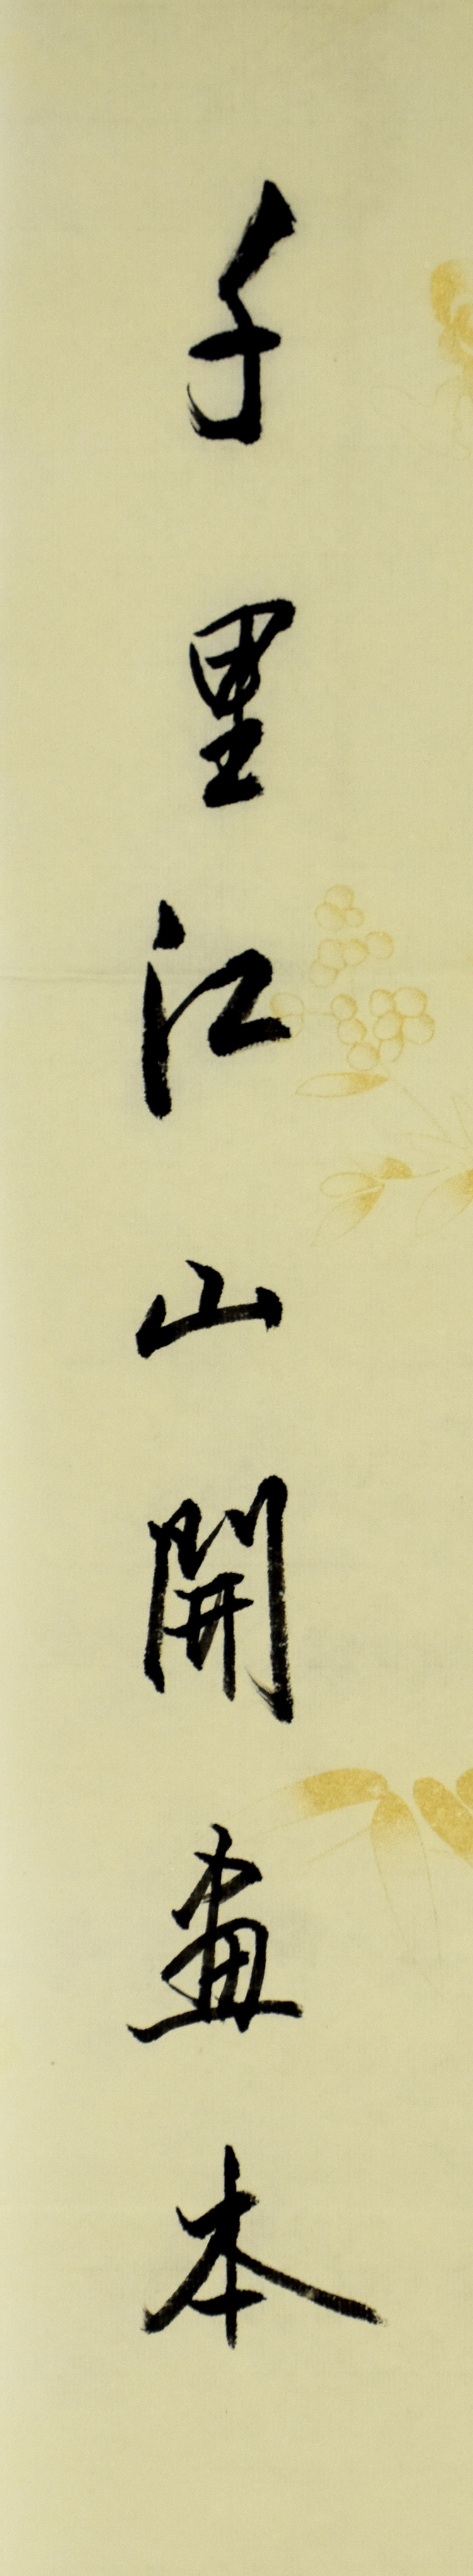 千里江山開畫本